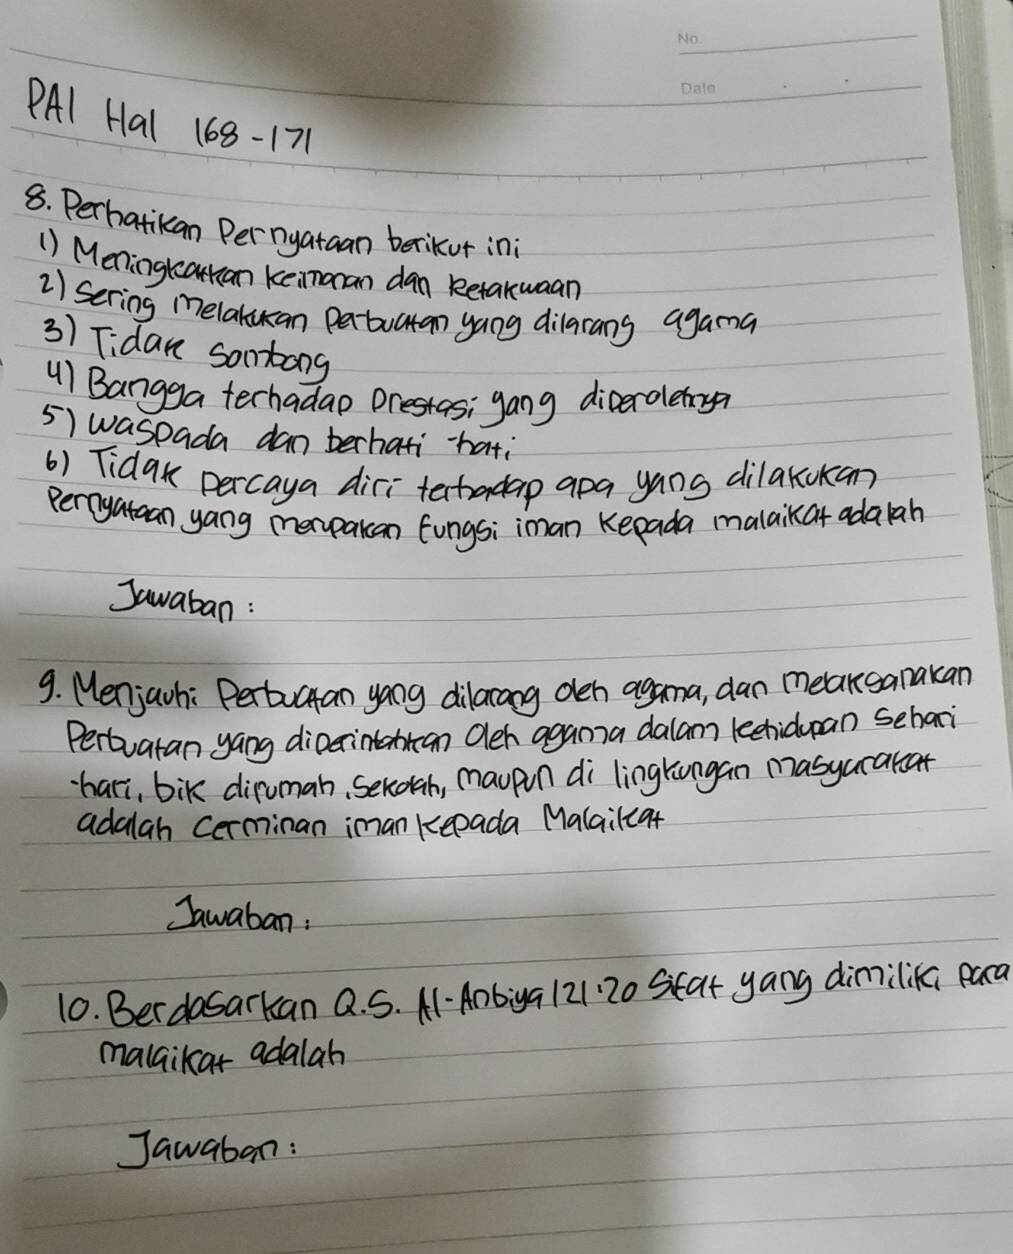 No.
Date
PAI Hal 168-171
8. Perhatikan Pernyataan berikut ini
1) Meningkatkan keimanan dan ketakwaan
2) Sering melakukan perbuatan yang dilarang agama
3) Tidak sombong
4) Bangga terhadap prestasi yang diperolehnya
5) waspada dan berhati-hati
6) Tidak percaya diri terhadap apa yang dilakukan
Pernyataan yang merupakan fungsi iman kepada malaikat adalah
Jawaban:
9. Menjauhi Perbuatan yang dilarang oleh agama, dan melaksanakan
Perbuatan yang diperintahkan oleh agama dalam kehidupan sehari
-hari, bik dirumah, sekolah, maupun di lingkungan masyarakat
adalah cerminan iman kepada Malaikat
Jawaban:
10. Berdasarkan Q.S. Al-Anbiya 121:20 Sifat yang dimiliki para
malaikat adalah
Jawaban: